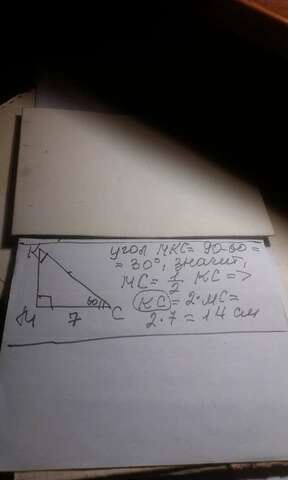 угол MKC= 90-60=
= 30°, значит,
MC= 1/2 KC =>
KC = 2·MC=
2·7 = 14 см
K
60
M 7 C